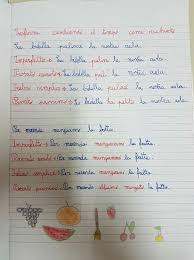 Trasforma cambiando il tempo come richiesto
La bidella pulisce la nostra aula.
Imperfetto La bidella puliva la nostra aula.
Passato remoto La bidella pulì la nostra aula.
Futuro semplice La bidella pulirà la nostra aula.
Passato prossimo La bidella ha pulito la nostra aula.
Per merenda mangiamo la frutta.
Imperfetto Per merenda mangiavamo la frutta.
Passato remoto Per merenda mangiammo la frutta.
Futuro semplice Per merenda mangeremo la frutta.
Passato prossimo Per merenda abbiamo mangiato la frutta.